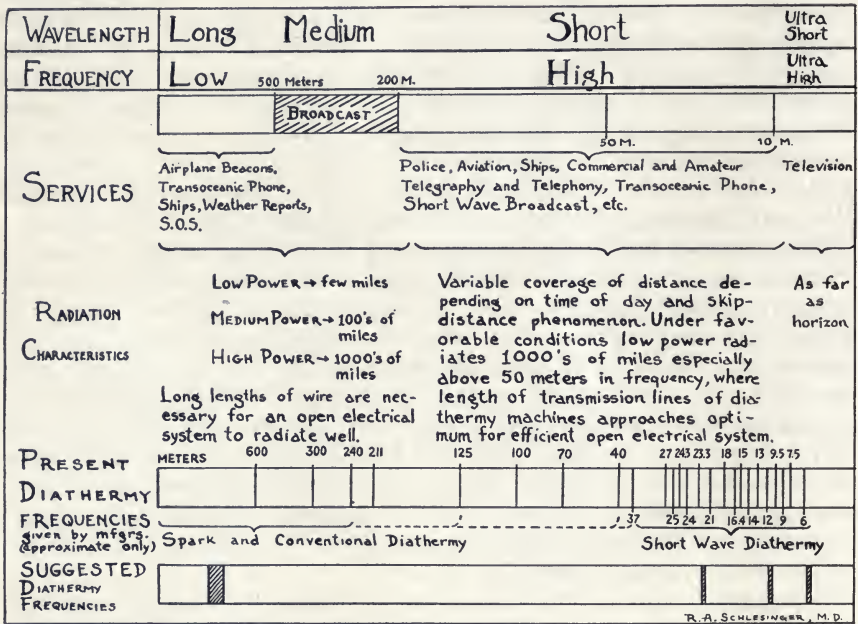 WAVELENGTH Long Medium Short Ultra Short
FREQUENCY Low 500 Meters 200 M. High Ultra High
BROADCAST
50 M. 10 M.
SERVICES
Airplane Beacons,
Transoceanic Phone,
Ships, Weather Reports,
S.O.S.
Police, Aviation, Ships, Commercial and Amateur
Telegraphy and Telephony, Transoceanic Phone,
Short Wave Broadcast, etc.
Television
RADIATION
CHARACTERISTICS
LOW POWER → few miles
MEDIUM POWER → 100's of
miles
HIGH POWER → 1000's of
miles
Long lengths of wire are nec-
essary for an open electrical
system to radiate well.
Variable coverage of distance de-
pending on time of day and skip-
distance phenomenon. Under fav-
orable conditions low power rad-
iates 1000's of miles especially
above 50 meters in frequency, where
length of transmission lines of dia-
thermy machines approaches opti-
mum for efficient open electrical system.
As far
as
horizon
PRESENT
DIATHERMY
FREQUENCIES
given by mfgrs.
(approximate only)
METERS 600 300 240 211 125 100 70 40 27 24.3 23.3 18 15 13 9.5 7.5
37 25 24 21 16.4 14 12 9 6
Spark and Conventional Diathermy
Short Wave Diathermy
SUGGESTED
DIATHERMY
FREQUENCIES
R.A. SCHLESINGER, M.D.